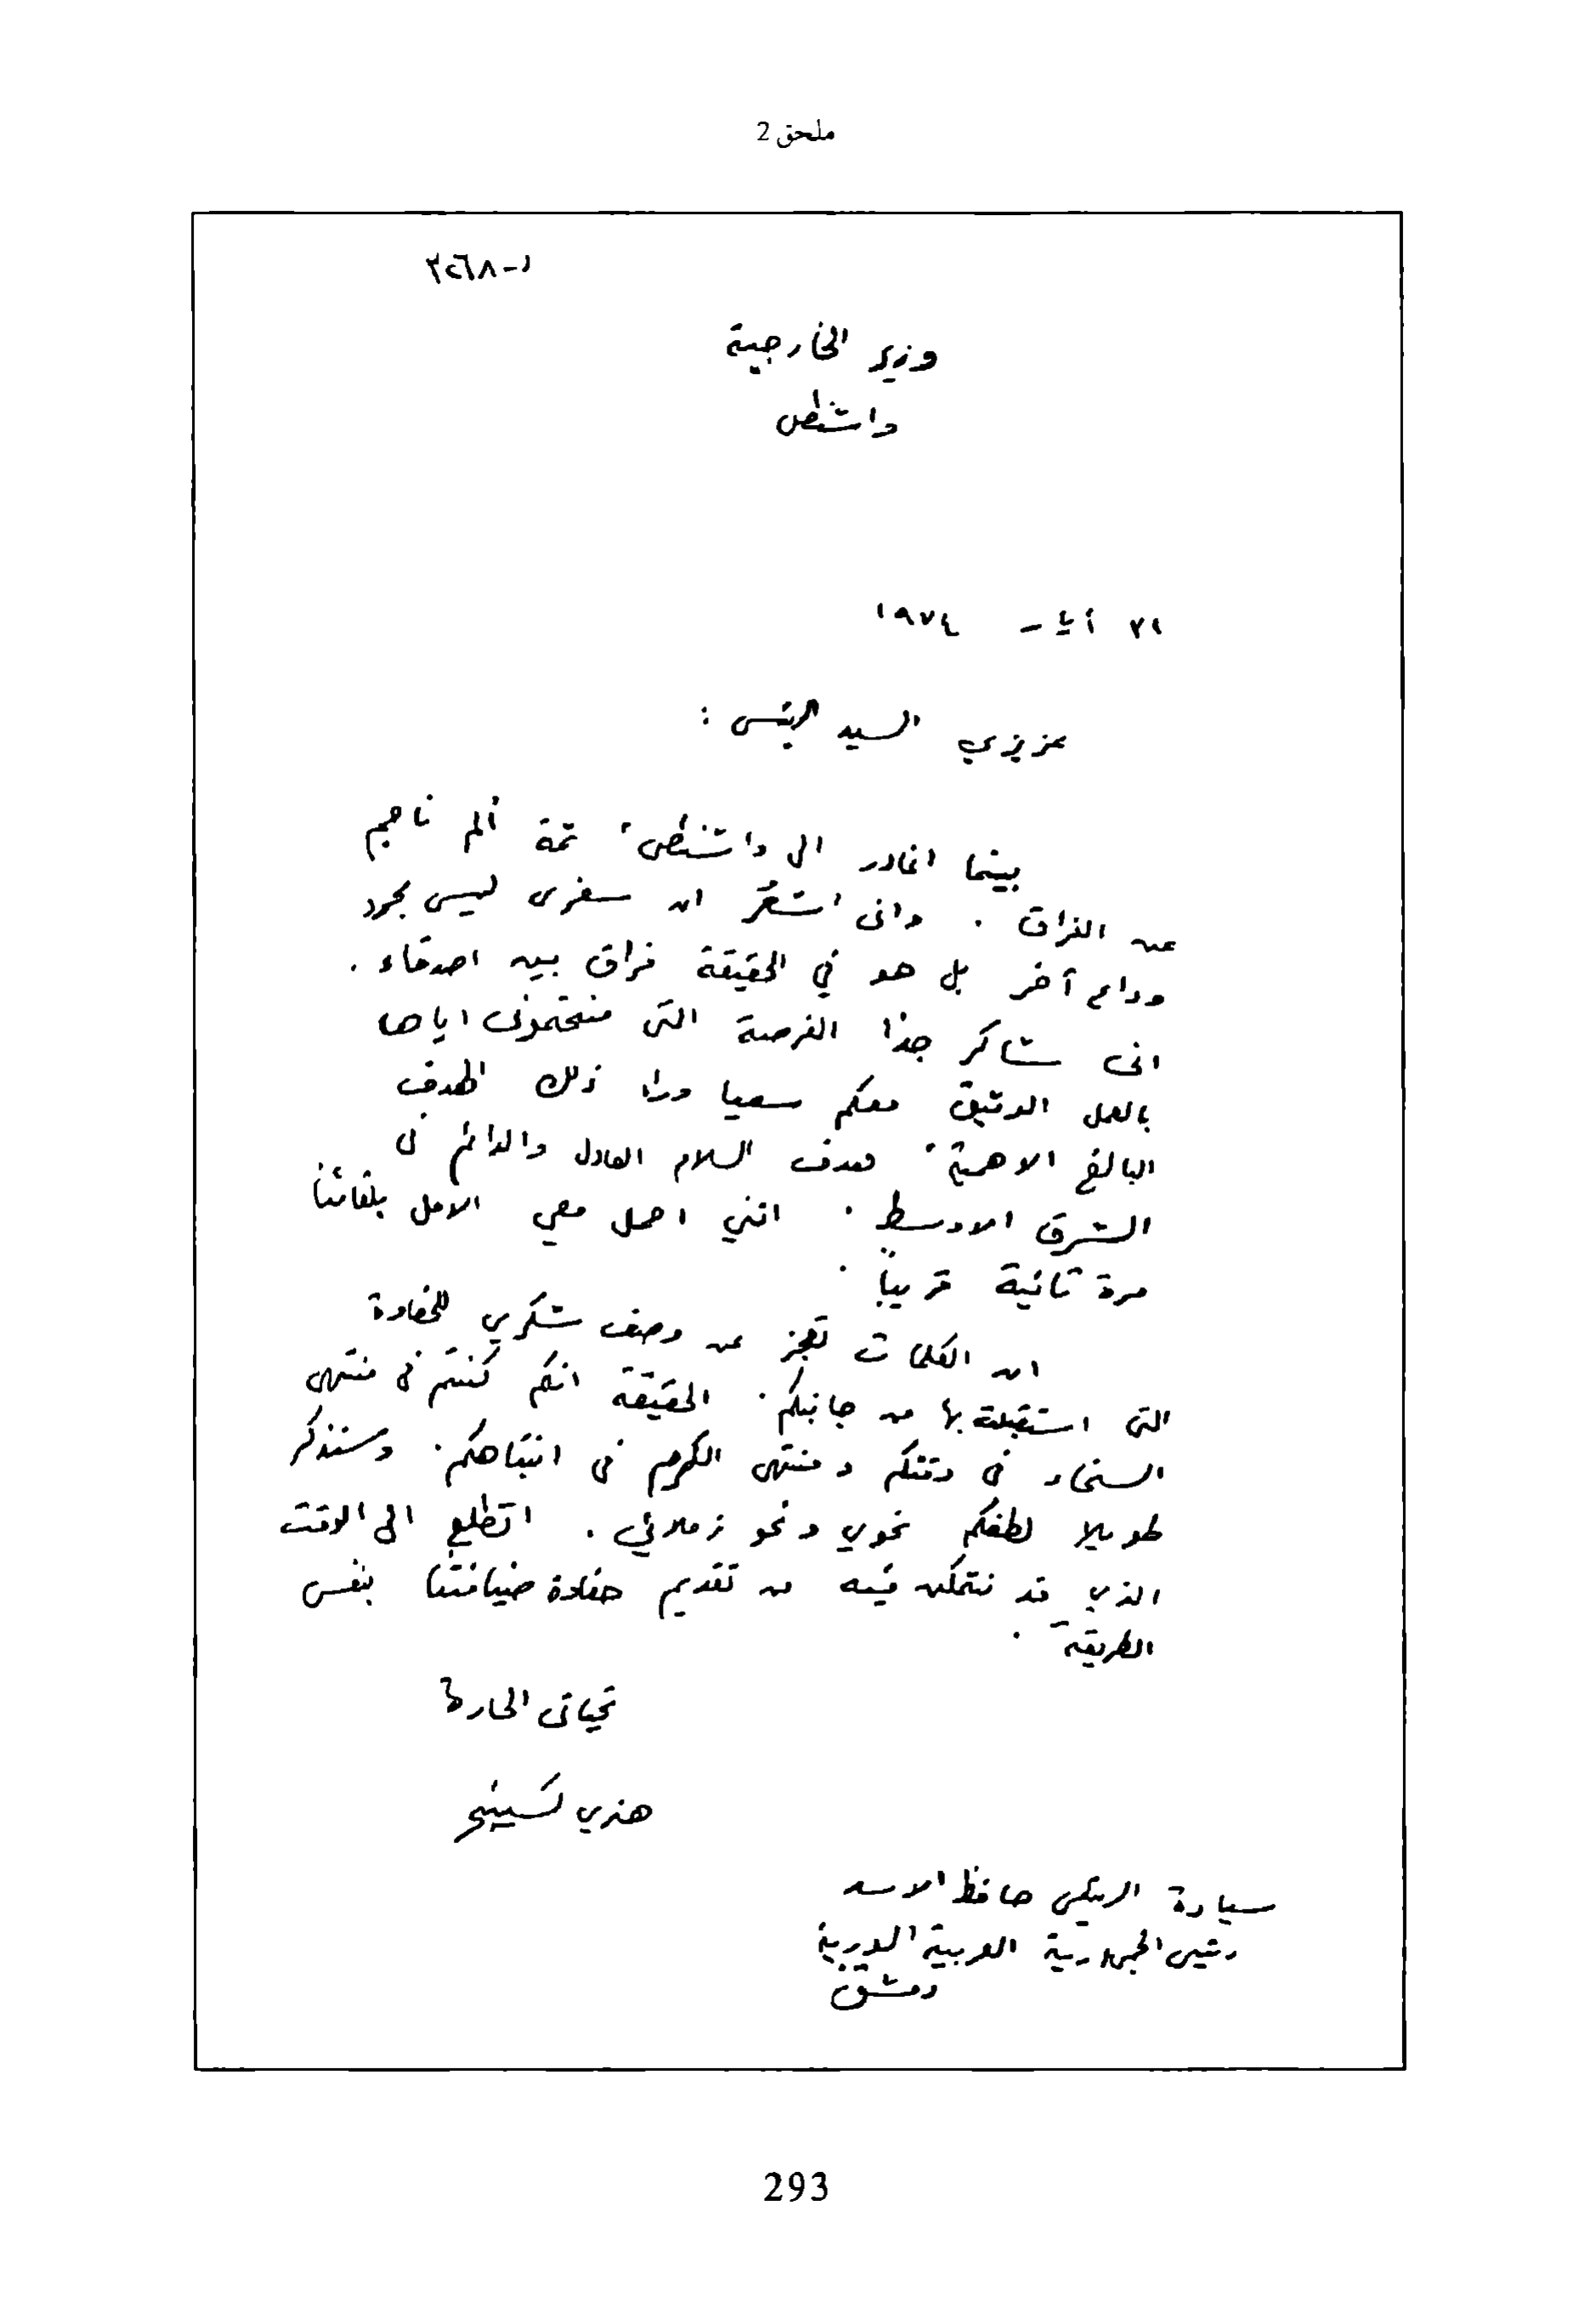 ملحق 2
وزير الخارجية
واشنطن
٣١ أيار ١٩٧٤
عزيزي السيد الرئيس :
بينما اغادر الى واشنطن، ثمة ألم ناجم
عن الفراق . واني اشعر ان سفرى ليس مجرد
وداع آخر بل هو في الحقيقة فراق بين اصدقاء .
انى شاكر جدا الفرصة التى منحتموني اياها
بالعمل الوثيق معكم سعيا وراء ذلك الهدف
البالغ الاهمية، هدف السلام العادل والدائم في
الشرق الاوسط . انني احمل معي الامل بلقائنا
مرة ثانية قريباً .
ان الكلمات تعجز عن وصف شكري للحفاوة
التى استقبلت بها من جانبكم. الحقيقة انكم كنتم في منتهى
السخاء في وقتكم ومنتهى الكرم في انتباهكم. وسنذكر
طويلا لطفكم نحوي ونحو زملائي . اتطلع الى الوقت
الذي قد نتمكن فيه من تقديم حفاوة ضيافتنا بنفس
الطريقة .
تحياتى الحارة
هنري كسينجر
سيادة الرئيس حافظ الاسد
رئيس الجمهورية العربية السورية
دمشق
293